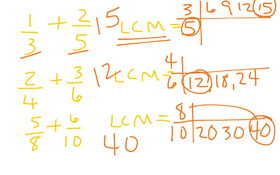 1/3 + 2/5 15 LCM = 3 | 6 9 12 15
5 |
2/4 + 3/6 12 LCM = 4 |
6 | 12, 18, 24
5/8 + 6/10 LCM = 8 |
40 10 | 20 30 40